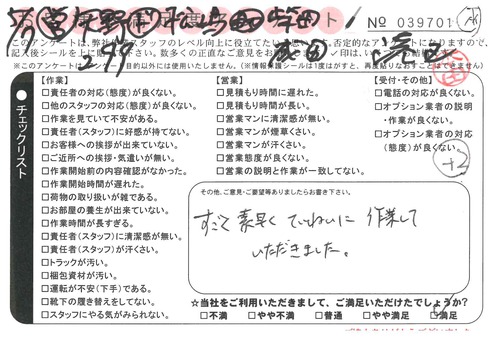 № 039701
このアンケートは、弊社
スタッフのレベル向上に役立てたい
否定的なアドバイスになりますので、
※このアンケートは
目的以外には使用いたしません。(※情報保護シールは1度はがすと、再度貼りなおすことはできません)
チェックリスト
【作業】
□責任者の対応(態度)が良くない。
□他のスタッフの対応(態度)が良くない。
□作業を見ていて不安がある。
□責任者(スタッフ)に好感が持てない。
□お客様への挨拶が出来ていない。
□ご近所への挨拶・気遣いが無い。
□作業開始前の内容確認がなかった。
□作業開始時間が遅れた。
□荷物の取り扱いが雑である。
□お部屋の養生が出来ていない。
□作業時間が長すぎる。
□責任者(スタッフ)に清潔感が無い。
□責任者(スタッフ)が汗くさい。
□トラックが汚い。
□梱包資材が汚い。
□運転が不安(下手)である。
□靴下の履き替えをしてない。
□スタッフにやる気がみられない。
【営業】
□見積もり時間に遅れた。
□見積もり時間が長い。
□営業マンに清潔感が無い。
□営業マンが煙草くさい。
□営業マンが汗くさい。
□営業態度が良くない。
□営業の説明と作業が一致してない。
【受付・その他】
□電話の対応が良くない。
□オプション業者の説明
・作業が良くない。
□オプション業者の対応
(態度)が良くない。
+2
その他、ご意見・ご要望等ありましたらお書き下さい。
すごく素早く ていねいに 作業して
いただきました。
☆当社をご利用いただきまして、ご満足いただけたでしょうか?
□不満 □やや不満 □普通 □やや満足 □満足